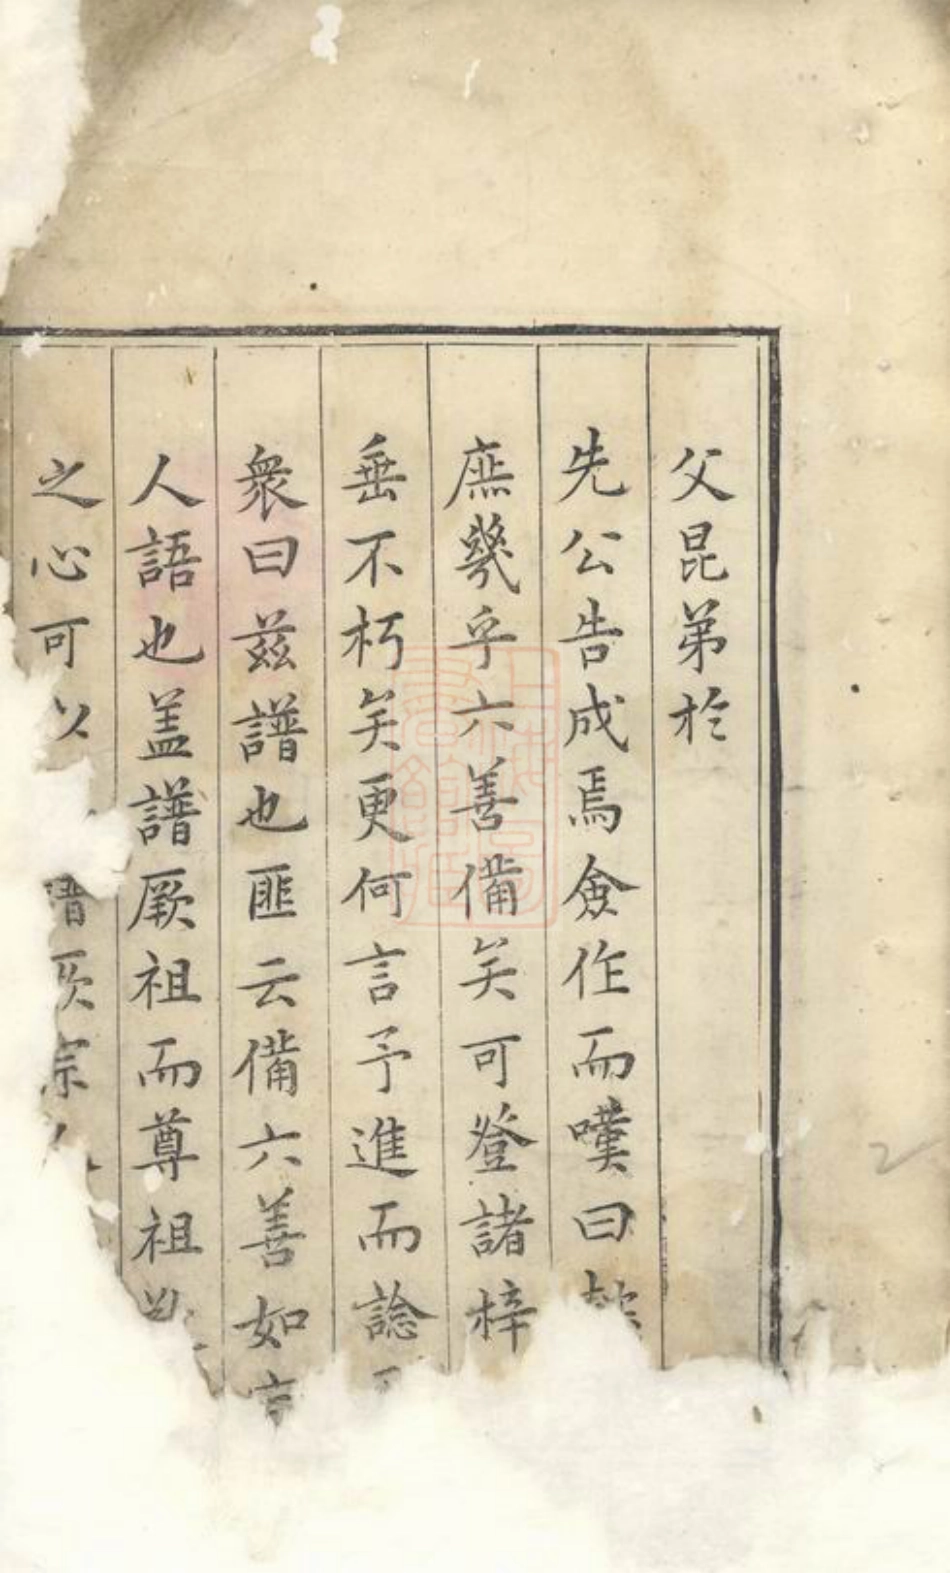 父昆弟於
先公告成焉僉作而嘆曰
庶幾乎六善備矣可登諸梓
垂不朽矣更何言予進而諗
衆曰茲譜也匪云備六善如
人語也盖譜厥祖而尊祖
之心可以譜厥宗